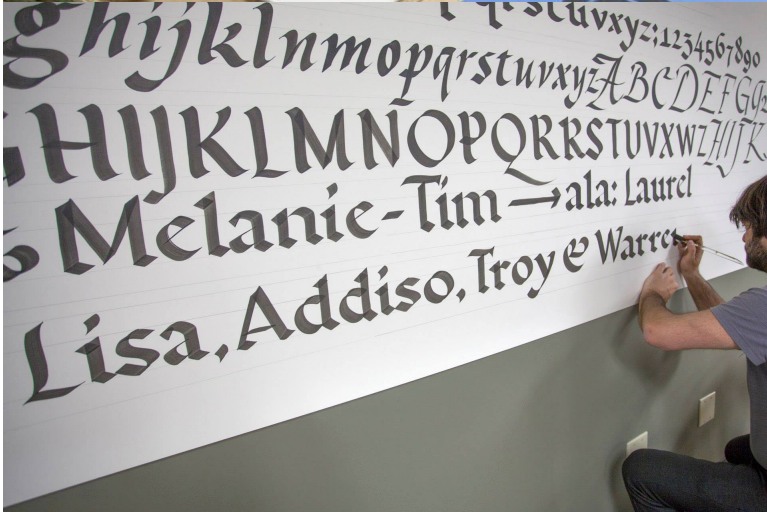 qrstuvxyz;1234567890
ghijklnmopqrstuvxyzABCDEFG
GHIJKLMNOPQRRSTUVXWZHIJK
& Melanie-Tim → ala: Laurel
Lisa, Addiso, Troy & Warre